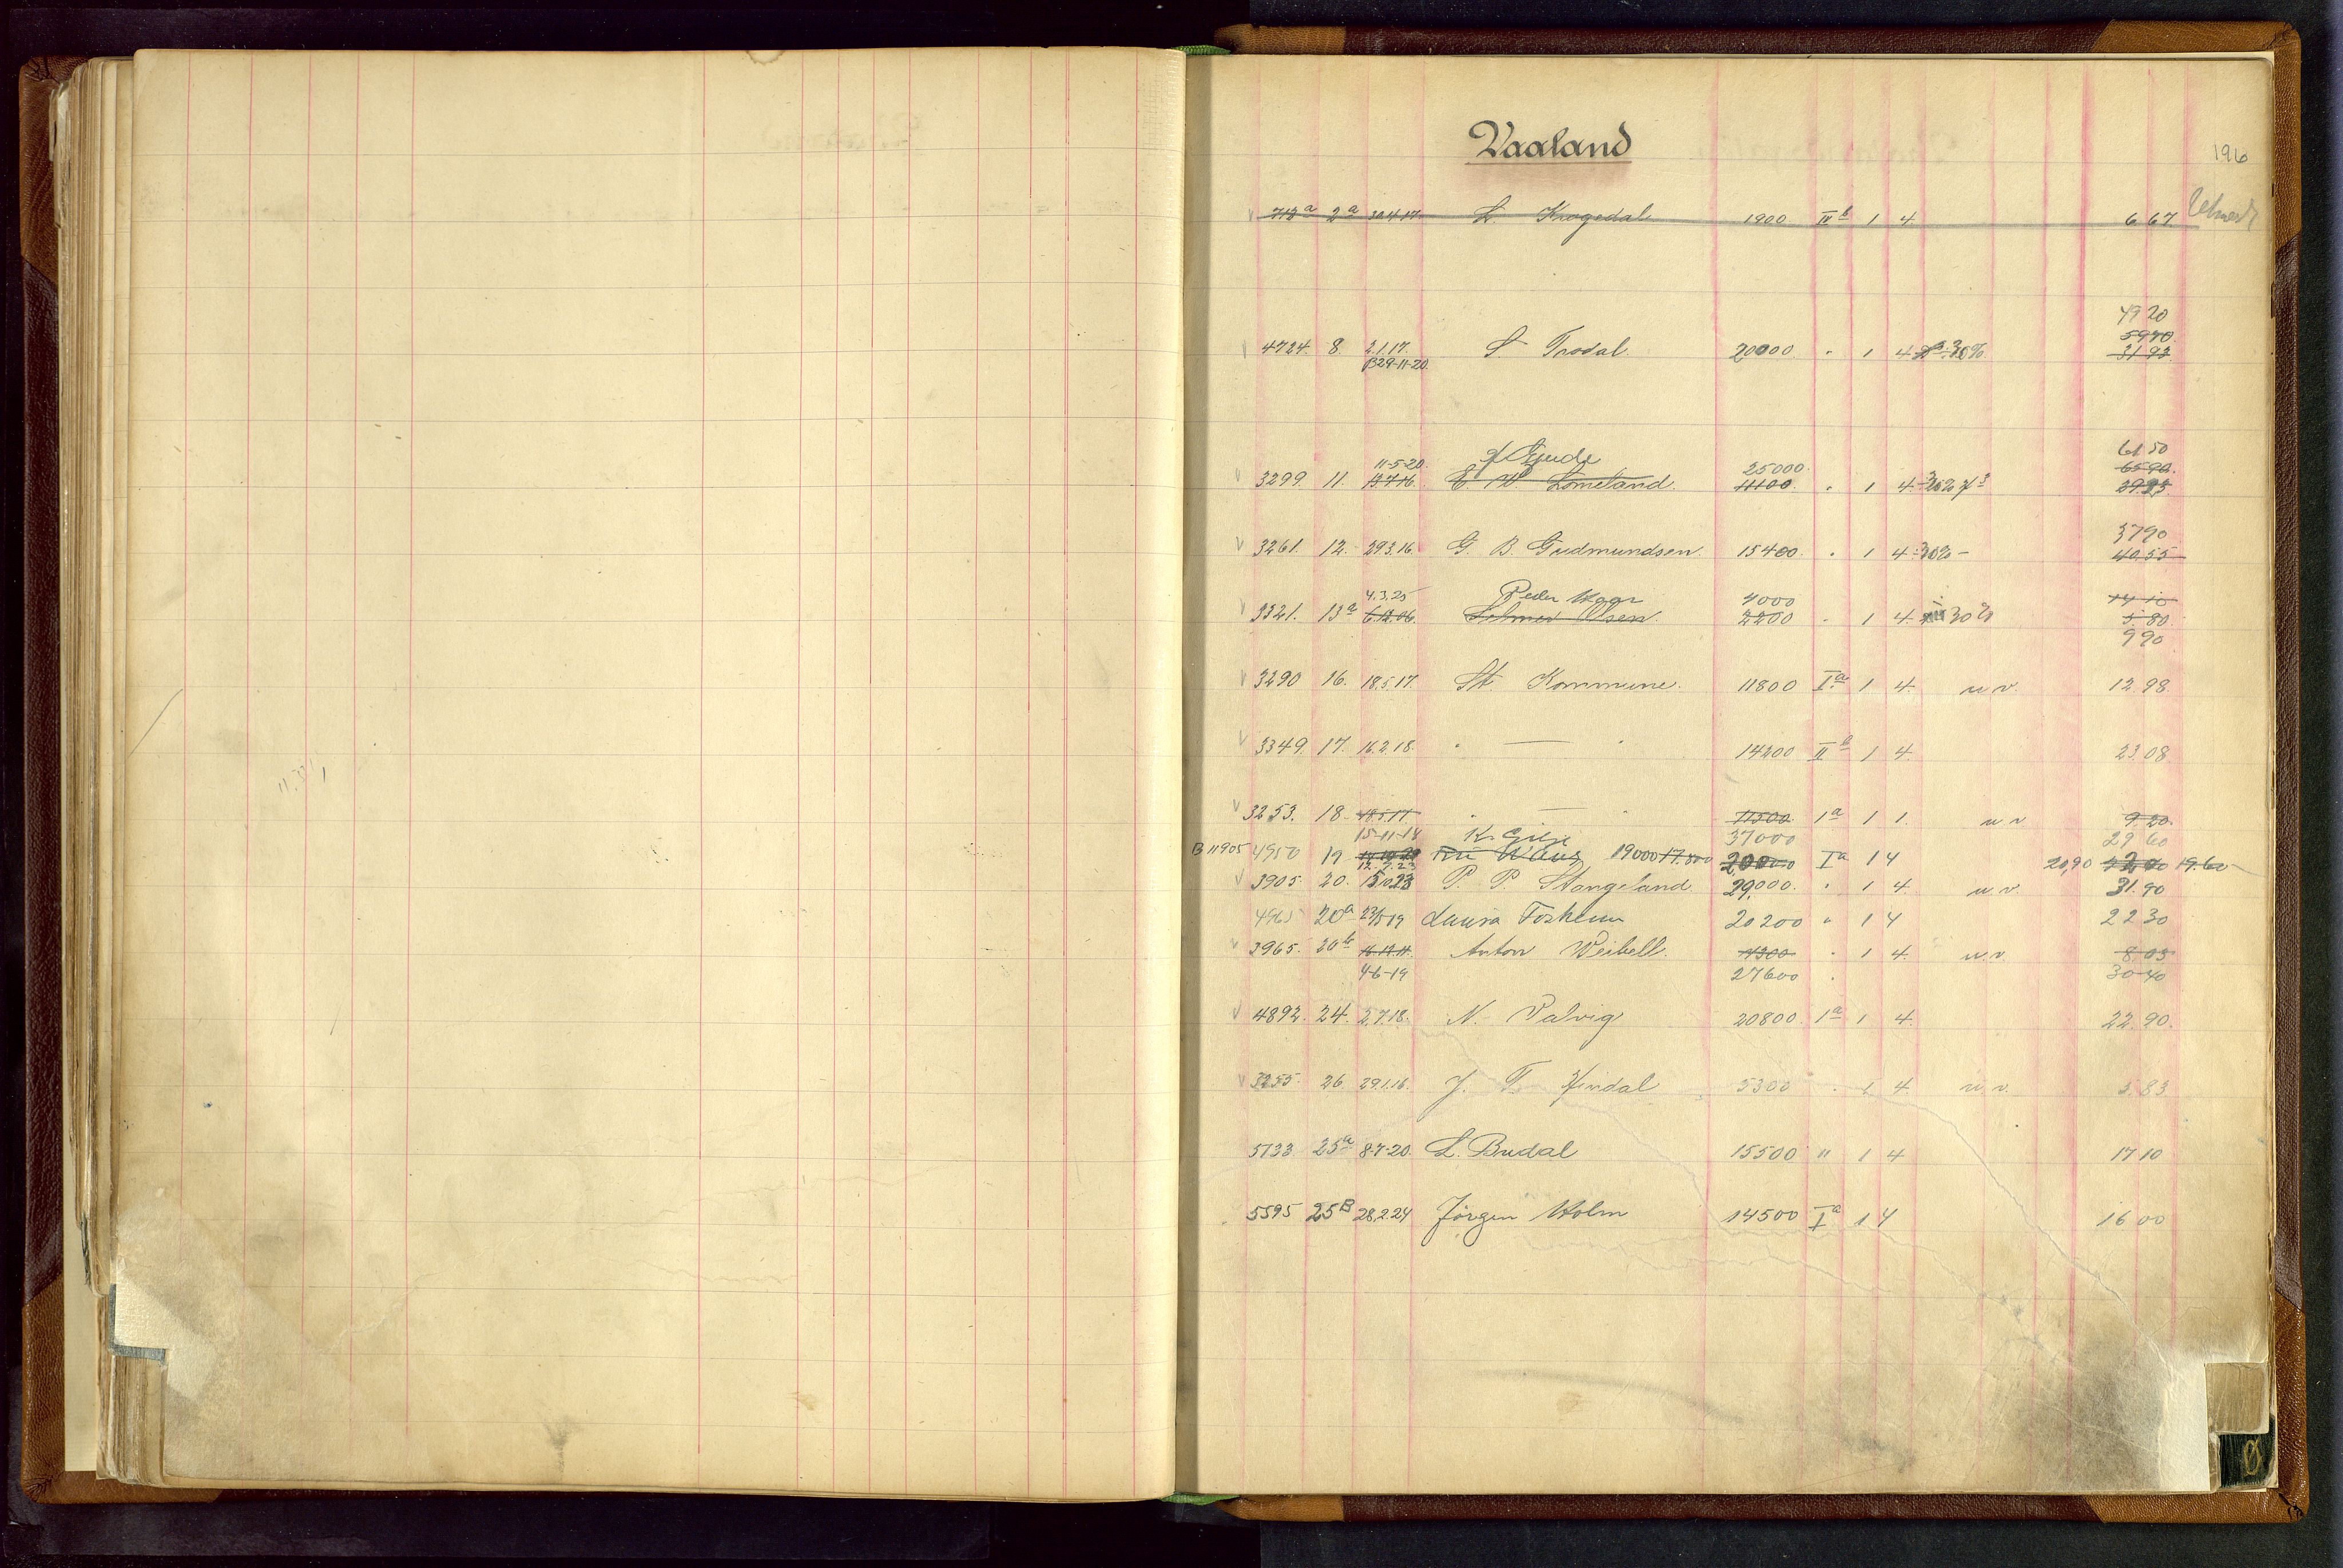 Vaaland
196
712a 2a 30.4.17. L. Krogedal 1900 IIb 1 4. 6 67.
49 20
59 70.
4724. 8. 2.1.17. S. Tro͞dal. 20000. " 1 4 30% 31 93
B29-11-20.
61 50
11-5-20. Gjede 25000. 65 90.
3299. 11. E. W. Lomeland. 11100. " 1 4 30% 29 25
37 90
3261. 12. 29.3.16. G. B. Gudmundsen. 15400. " 1 4 30% - 40.55
4.3.25 Peder Haar 4000 14 10
3321. 13a 6.12.06. Selmer Olsen. 2200 " 1 4. 30% 5. 80.
9 90
3290 16. 18.5.17. St. Kommune. 11800 Ia 1 4. u. v. 12. 98.
3349. 17. 16.2.18. " — " 14200 IIb 1 4. 23 08
3253. 18. 18.5.17 " — " 11500 Ia 1 1. u. v. 9.20.
15-11-18 K. Gilje 37000 29 60
B 11905 4950 19 19000 17.800 20000 Ia 1 4 20,90 19.60
3905. 20. 15.10.23 P. P. Stangeland. 29,000. " 1 4. u. v. 31. 90
4965 20a 23/5 19 Laura Foskeim 20 200 " 1 4 22 30
3965. 20b Anton Weibell. 7300 " 1 4. u. v. 8 03
4-6-19 27600 " 30 40
4892. 24. 2.7.18. N. Valvig 20800 Ia 1 4. 22. 90.
3255. 26. 29.1.16. J. T. Hindal 5300 " 1 4. u. v. 5. 83
5133 25a 8-7-20. L. Budal 15500 " 1 4 17 10
5595 25B 28.2.24 Jörgen Holm 14500 Ia 1 4 16 00
Ø